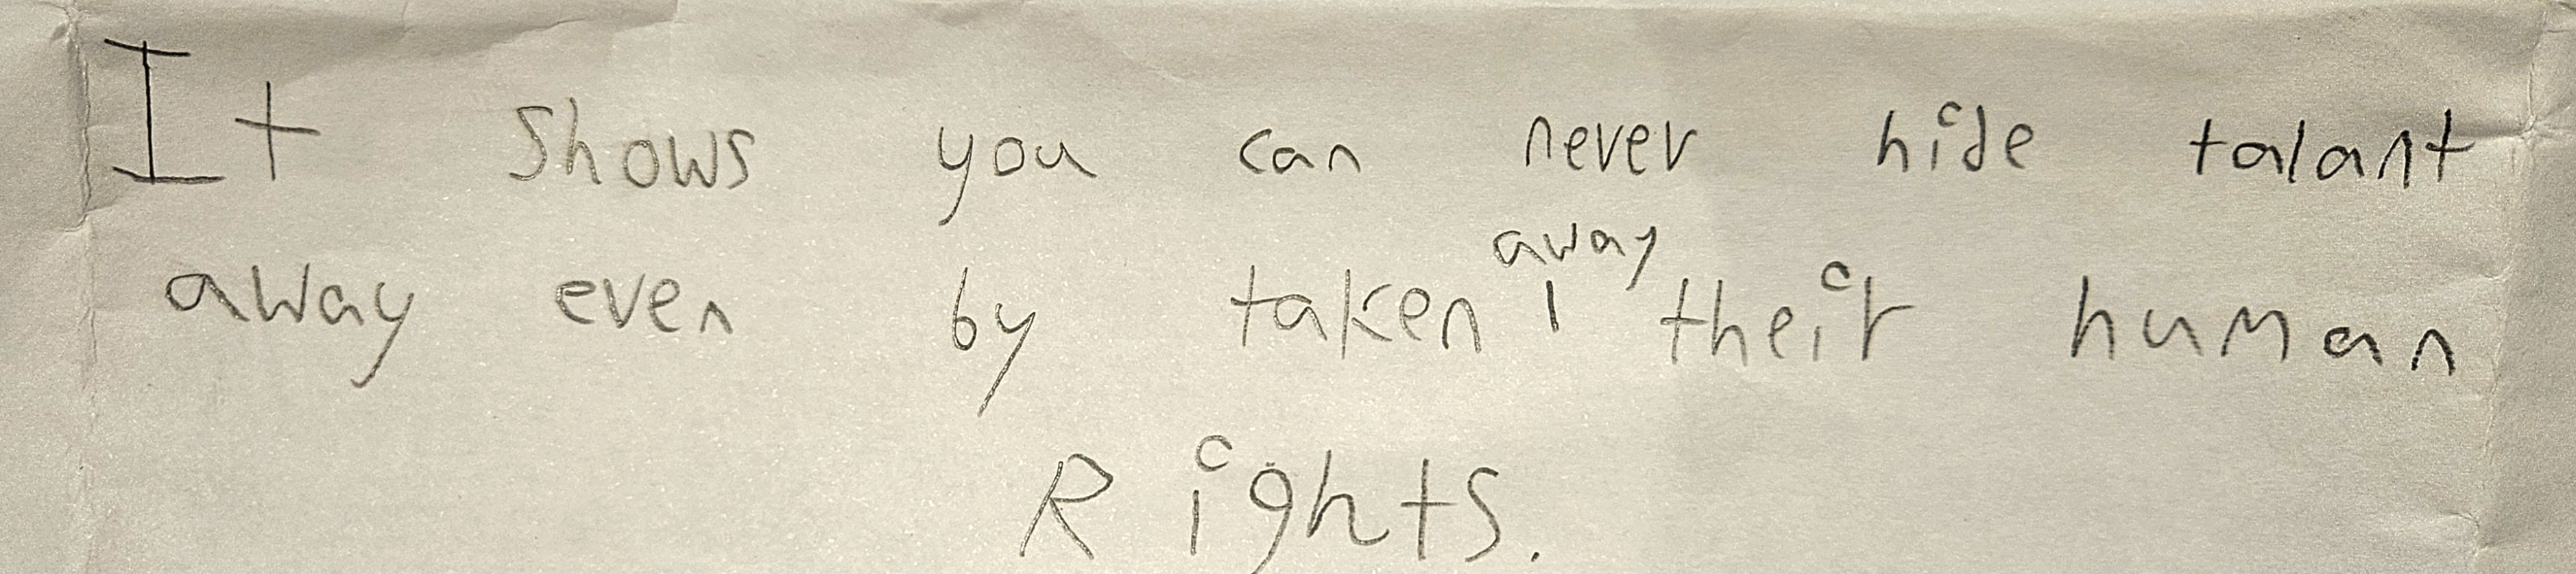 It shows you can never hide talant
away even by taken away their human
Rights.